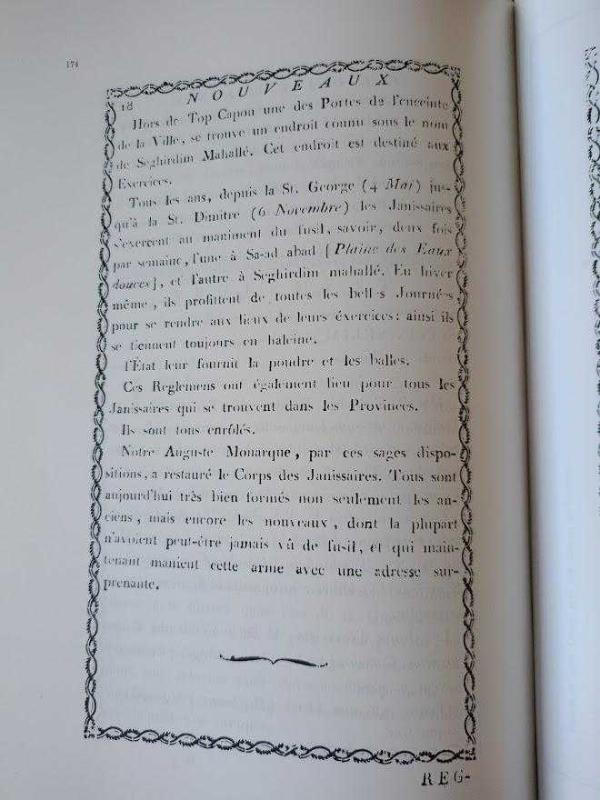 174
18 NOUVEAUX
Hors de Top Capou une des Portes de l'enceinte
de la Ville, se trouve un endroit connu sous le nom
de Seghirdim Mahallé. Cet endroit est destiné aux
Exercices.
Tous les ans, depuis la St. George (4 Mai) jus-
qu'à la St. Dimitre (6 Novembre) les Janissaires
s'exercent au maniment du fusil, savoir, deux fois
par semaine, l'une à Sa-ad abad [Plaine des Eaux
douces], et l'autre à Seghirdim mahallé. En hiver
même, ils profittent de toutes les bell s Journé s
pour se rendre aux lieux de leurs éxercices: ainsi ils
se tiennent toujours en haleine.
l'État leur fournit la poudre et les balles.
Ces Reglemens ont également lieu pour tous les
Janissaires qui se trouvent dans les Provinces.
Ils sont tous enrôlés.
Notre Auguste Monarque, par ces sages dispo-
sitions, a restauré le Corps des Janissaires. Tous sont
aujourd'hui très bien formés non seulement les an-
ciens, mais encore les nouveaux, dont la plupart
n'avoient peut-être jamais vû de fusil, et qui main-
tenant manient cette arme avec une adresse sur-
prenante.
REG-